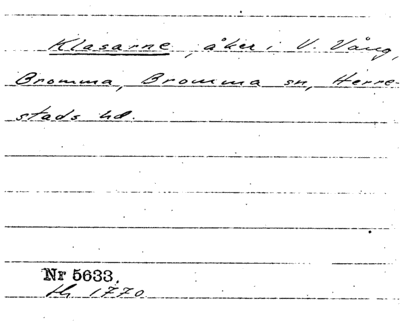 Klasarne, åker i V. Vång,
Bromma, Bromma sn, Herre-
stads hd.
Nr 5633.
1770.